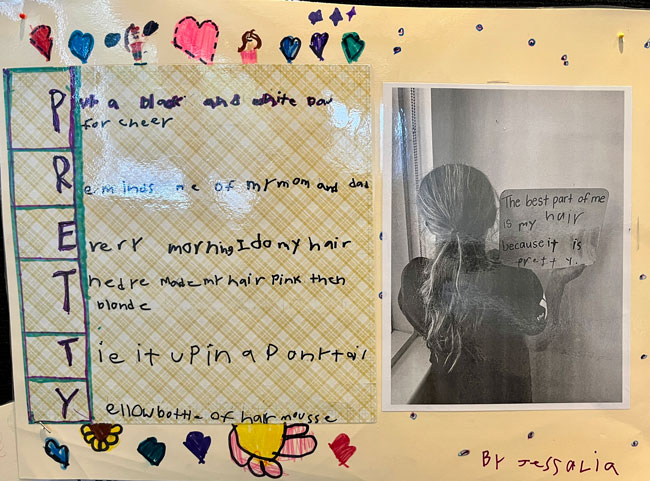 Put a black and white Bow
for cheer
Reminds me of my mom and dad
Every morning I do my hair
Thedre made my hair pink then
blonde
Tie it up in a Ponytail
Yellow bottle of hair mousse
The best part of me
is my hair
because it is
pretty.
By Jessalia